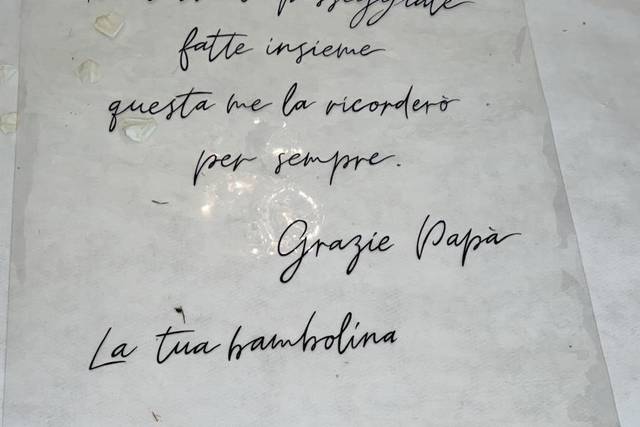 passeggiate
fatte insieme
questa me la ricorderò
per sempre.
Grazie Papà
La tua bambolina